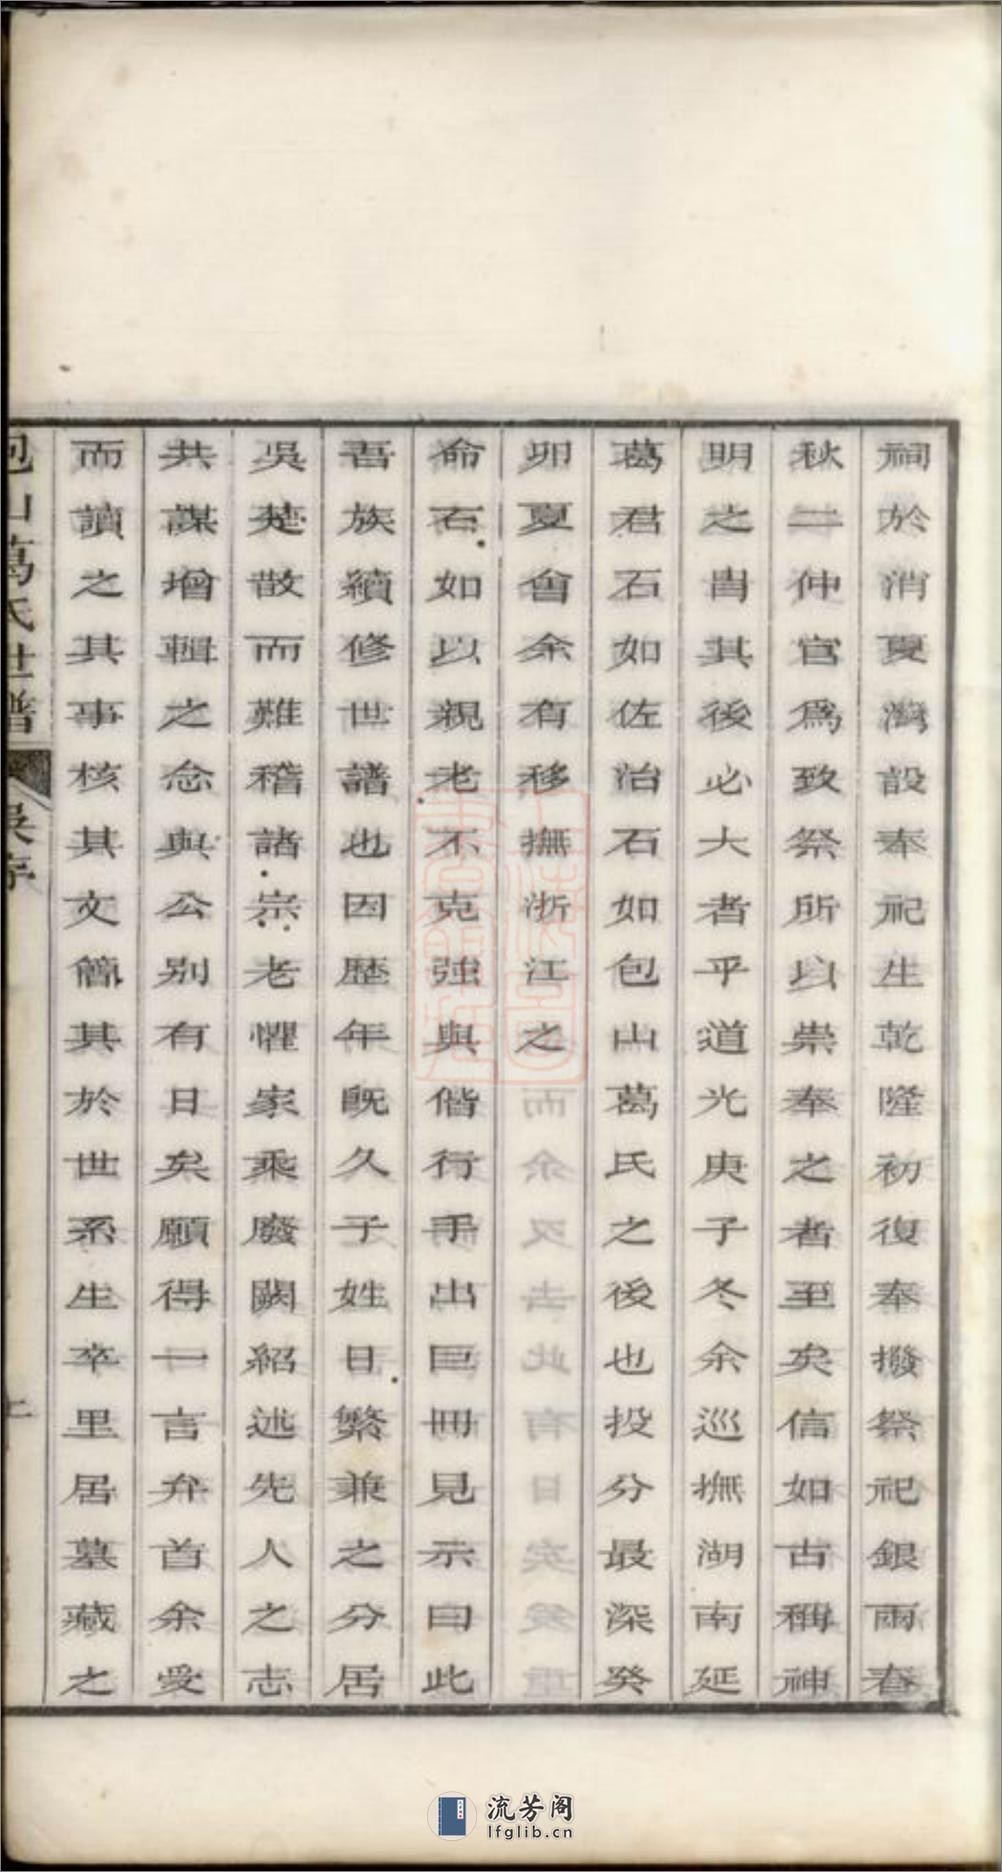 祠於消夏灣設奉祀生乾隆初復奉撥祭祀銀兩春
秋二仲官爲致祭所以崇奉之者至矣信如古稱神
明之胄其後必大者乎道光庚子冬余巡撫湖南延
葛君石如佐治石如包山葛氏之後也投分最深癸
卯夏會余有移撫浙江之
命石如以親老不克強與偕行手出巨冊見示曰此
吾族續修世譜也因歷年既久子姓日繁兼之分居
吳楚散而難稽諸宗老懼家乘廢闕紹述先人之志
共謀增輯之念與公別有日矣願得一言弁首余受
而讀之其事核其文簡其於世系生卒里居墓藏之
包山葛氏世譜 吳序
流芳阁
lfglib.cn